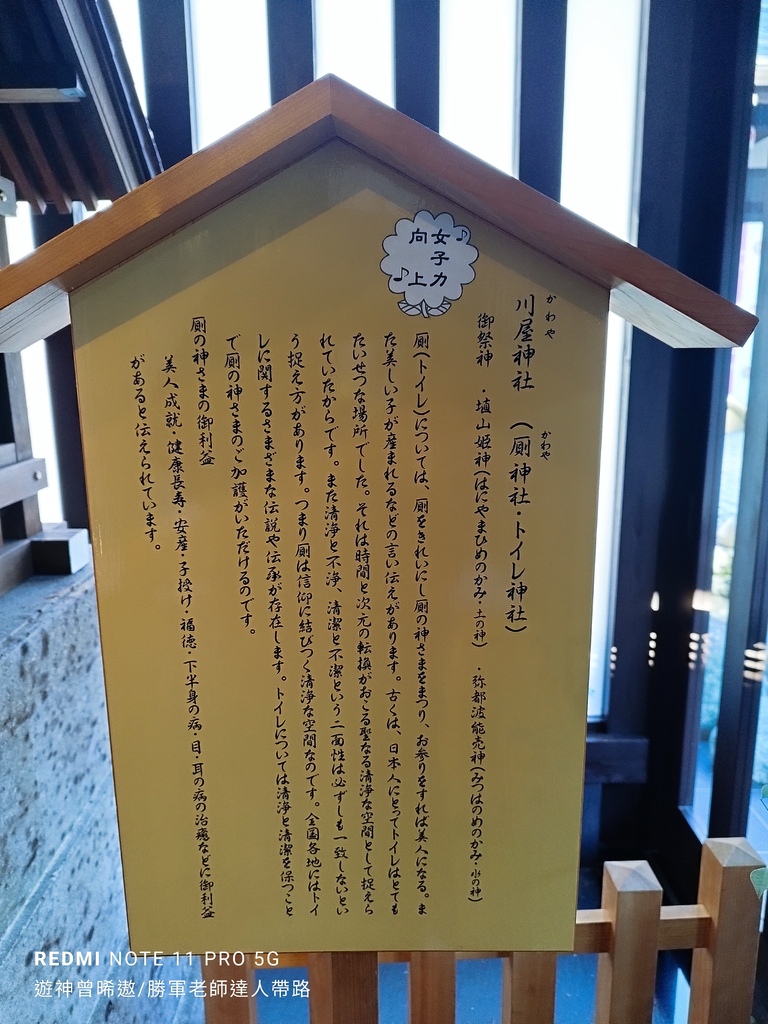 女子力
向上
かわや
川屋神社
かわや
(厠神社・トイレ神社)
御祭神 ・埴山姫神(はにやまひめのかみ・土の神) ・弥都波能売神(みつはのめのかみ・水の神)
厠(トイレ)については、厠をきれいにし厠の神さまをまつり、お参りをすれば美人になる。ま
た美しい子が産まれるなどの言い伝えがあります。古くは、日本人にとってトイレはとても
たいせつな場所でした。それは時間と次元の転換がおこる聖なる清浄な空間として捉えら
れていたからです。また清浄と不浄、清潔と不潔という二面性は必ずしも一致しないとい
う捉え方があります。つまり厠は信仰に結びつく清浄な空間なのです。全国各地にはトイ
レに関するさまざまな伝説や伝承が存在します。トイレについては清浄と清潔を保つこと
で厠の神さまのご加護がいただけるのです。
厠の神さまの御利益
美人成就・健康長寿・安産・子授け・福徳・下半身の病・目・耳の病の治癒などに御利益
があると伝えられています。
REDMI NOTE 11 PRO 5G
遊神曾晞遨/勝軍老師達人帶路